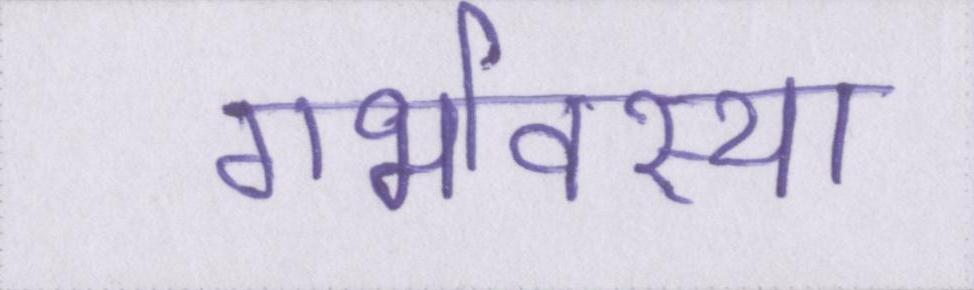 गर्भावस्था